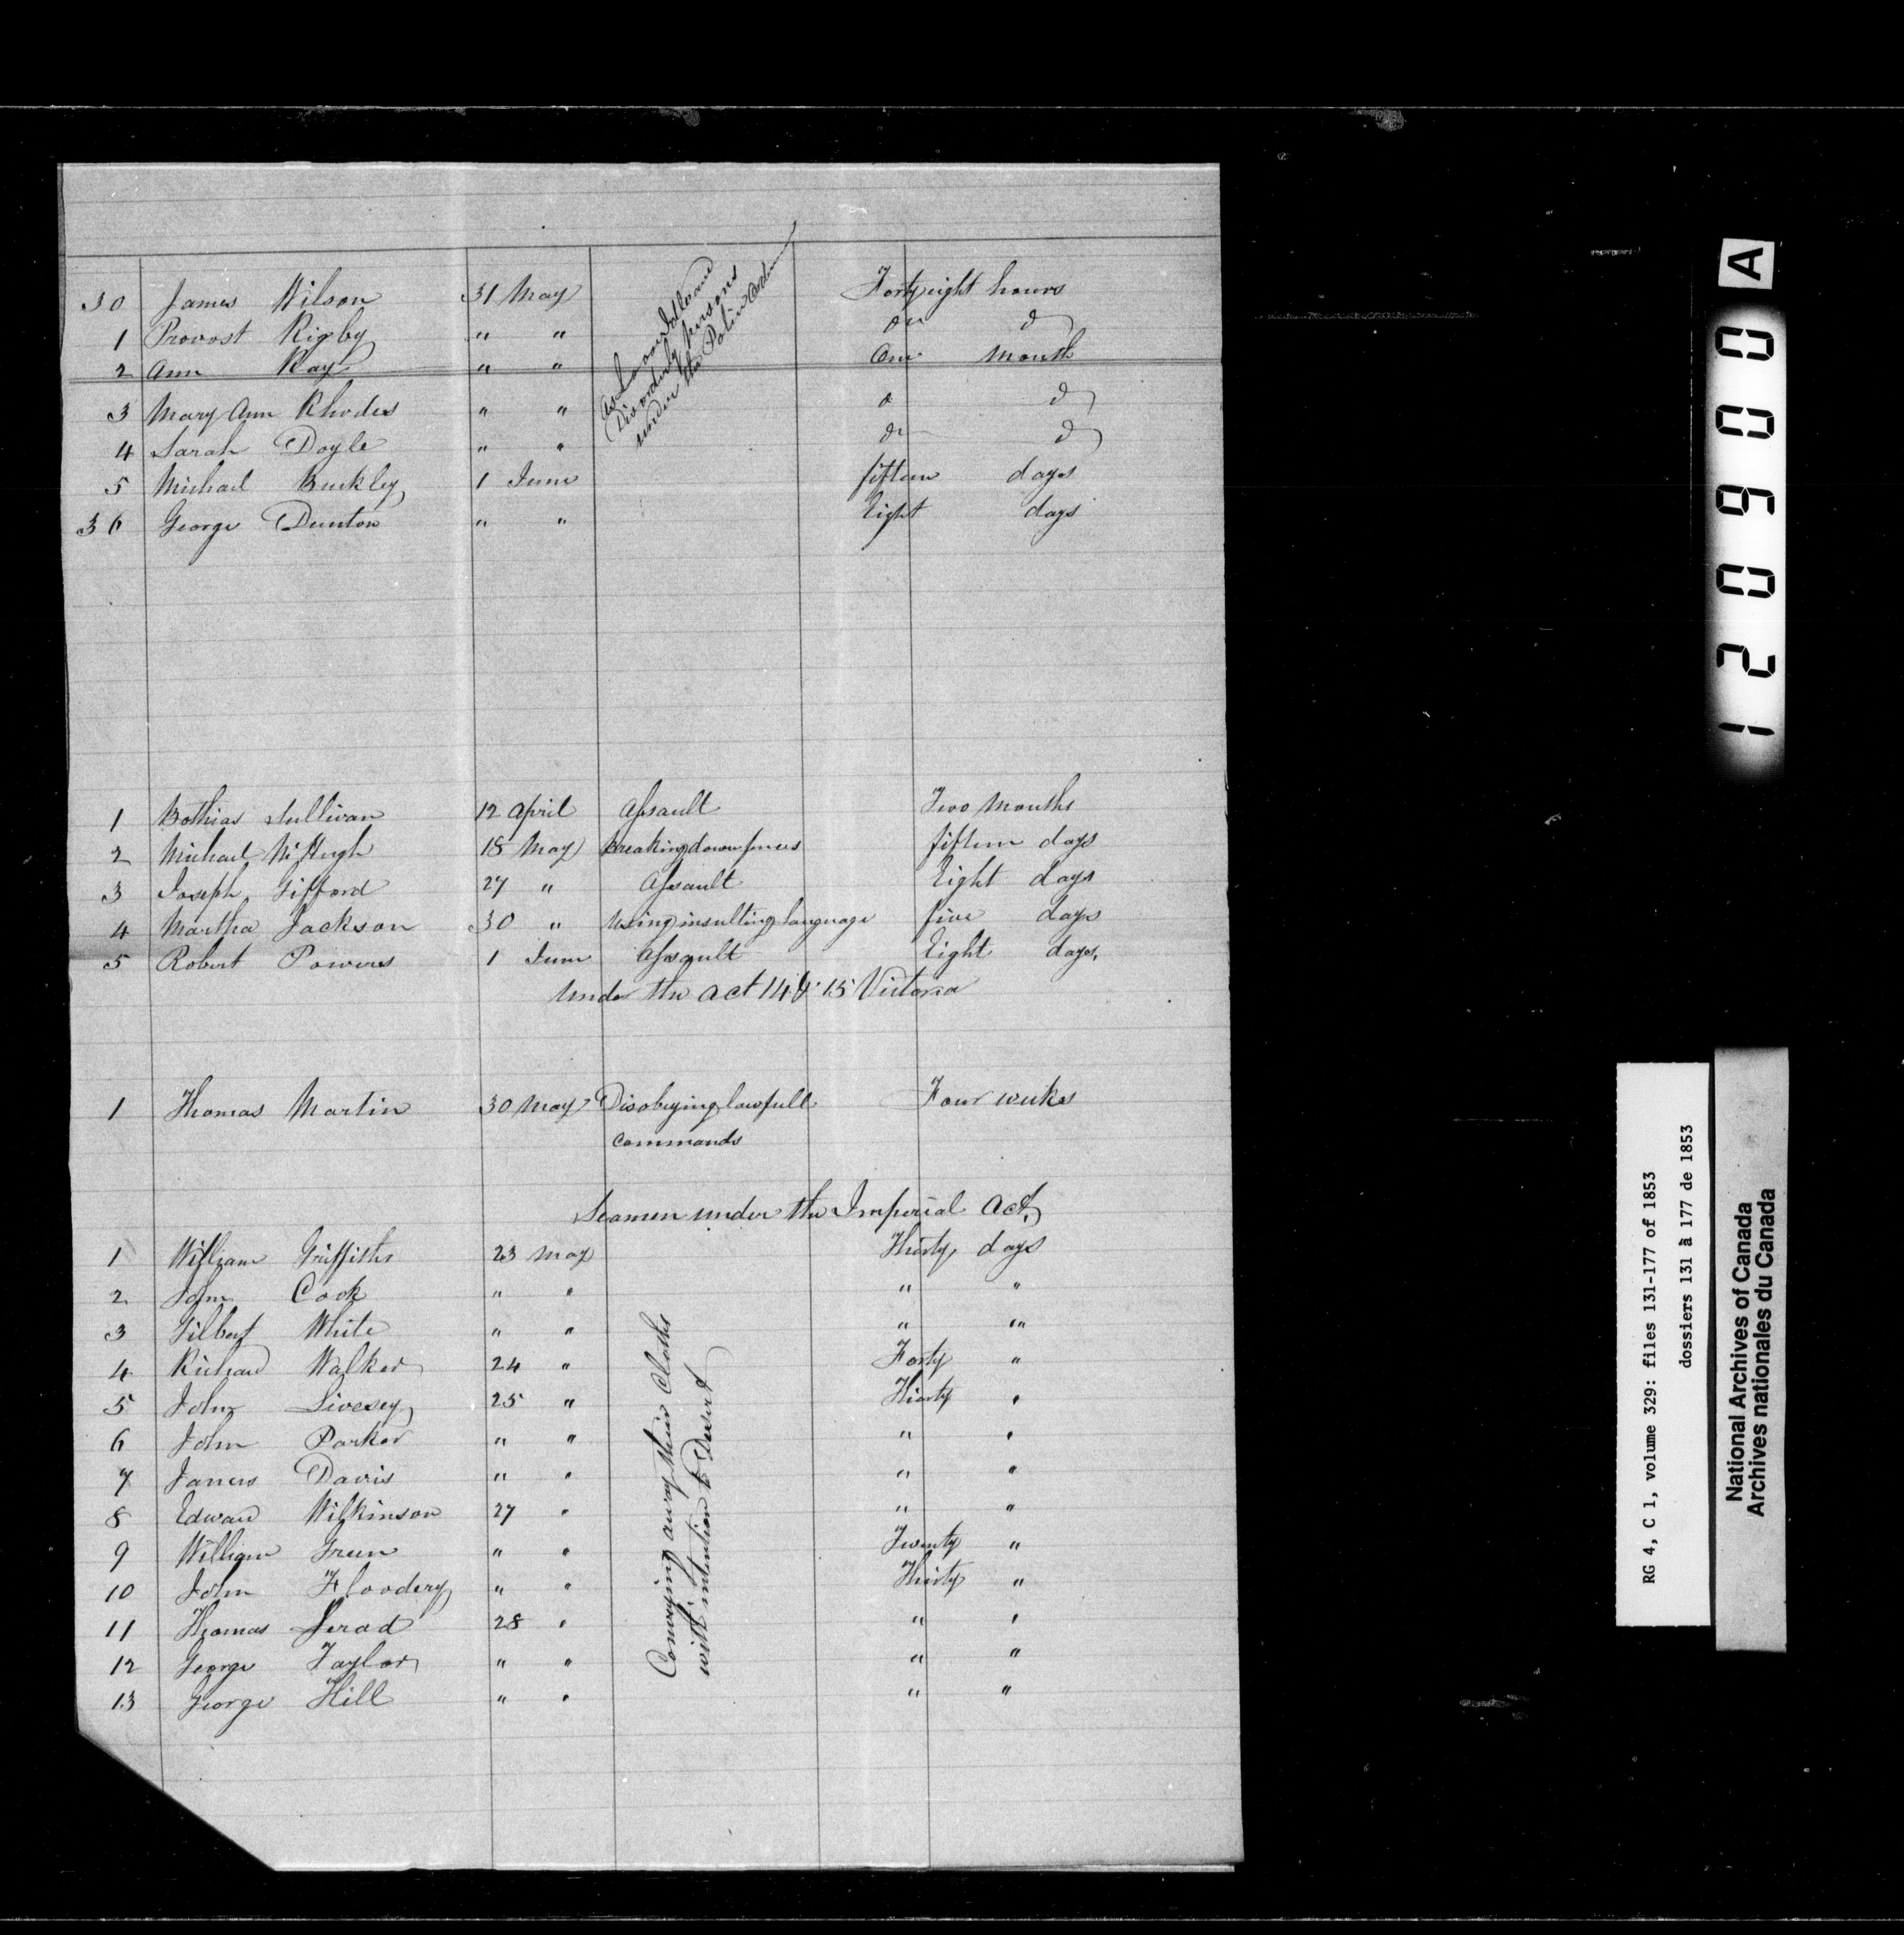 30 James Wilson 31 May Forty eight hours
1 Provost Rigby " " do do
2 Ann Ray " " One Month
3 Mary Ann Rhodes " " do do
4 Sarah Doyle " " do do
5 Michael Buckley 1 June fifteen days
36 George Dunton " " Eight days
as Loose Idle and
Disorderly persons
under the Police Ordce
1 Bothias Sullivan 12 April Assault Two Months
2 Michael McHugh 18 May Breaking down fences fifteen days
3 Joseph Gifford 27 " Assault Eight days
4 Martha Jackson 30 " Using insulting language five days
5 Robert Powers 1 June Assault Eight days.
Under the Act 14 & 15 Victoria
1 Thomas Martin 30 May Disobeying lawfull Four weeks
commands
Seamen under the Imperial Act,
1 William Griffiths 23 May Thirty days
2 John Cook " " " "
3 Gilbert White " " " "
4 Richard Walker 24 " Forty "
5 John Livesey 25 " Thirty "
6 John Parker " " " "
7 James Davis " " " "
8 Edward Wilkinson 27 " " "
9 William Green " " Twenty "
10 John Floodery " " Thirty "
11 Thomas Jerad 28 " " "
12 George Taylor " " " "
13 George Hill " " " "
Conveying away their Cloths
with intention to Desert
A
120900
RG 4, C 1, volume 329: files 131-177 of 1853
dossiers 131 à 177 de 1853
National Archives of Canada
Archives nationales du Canada